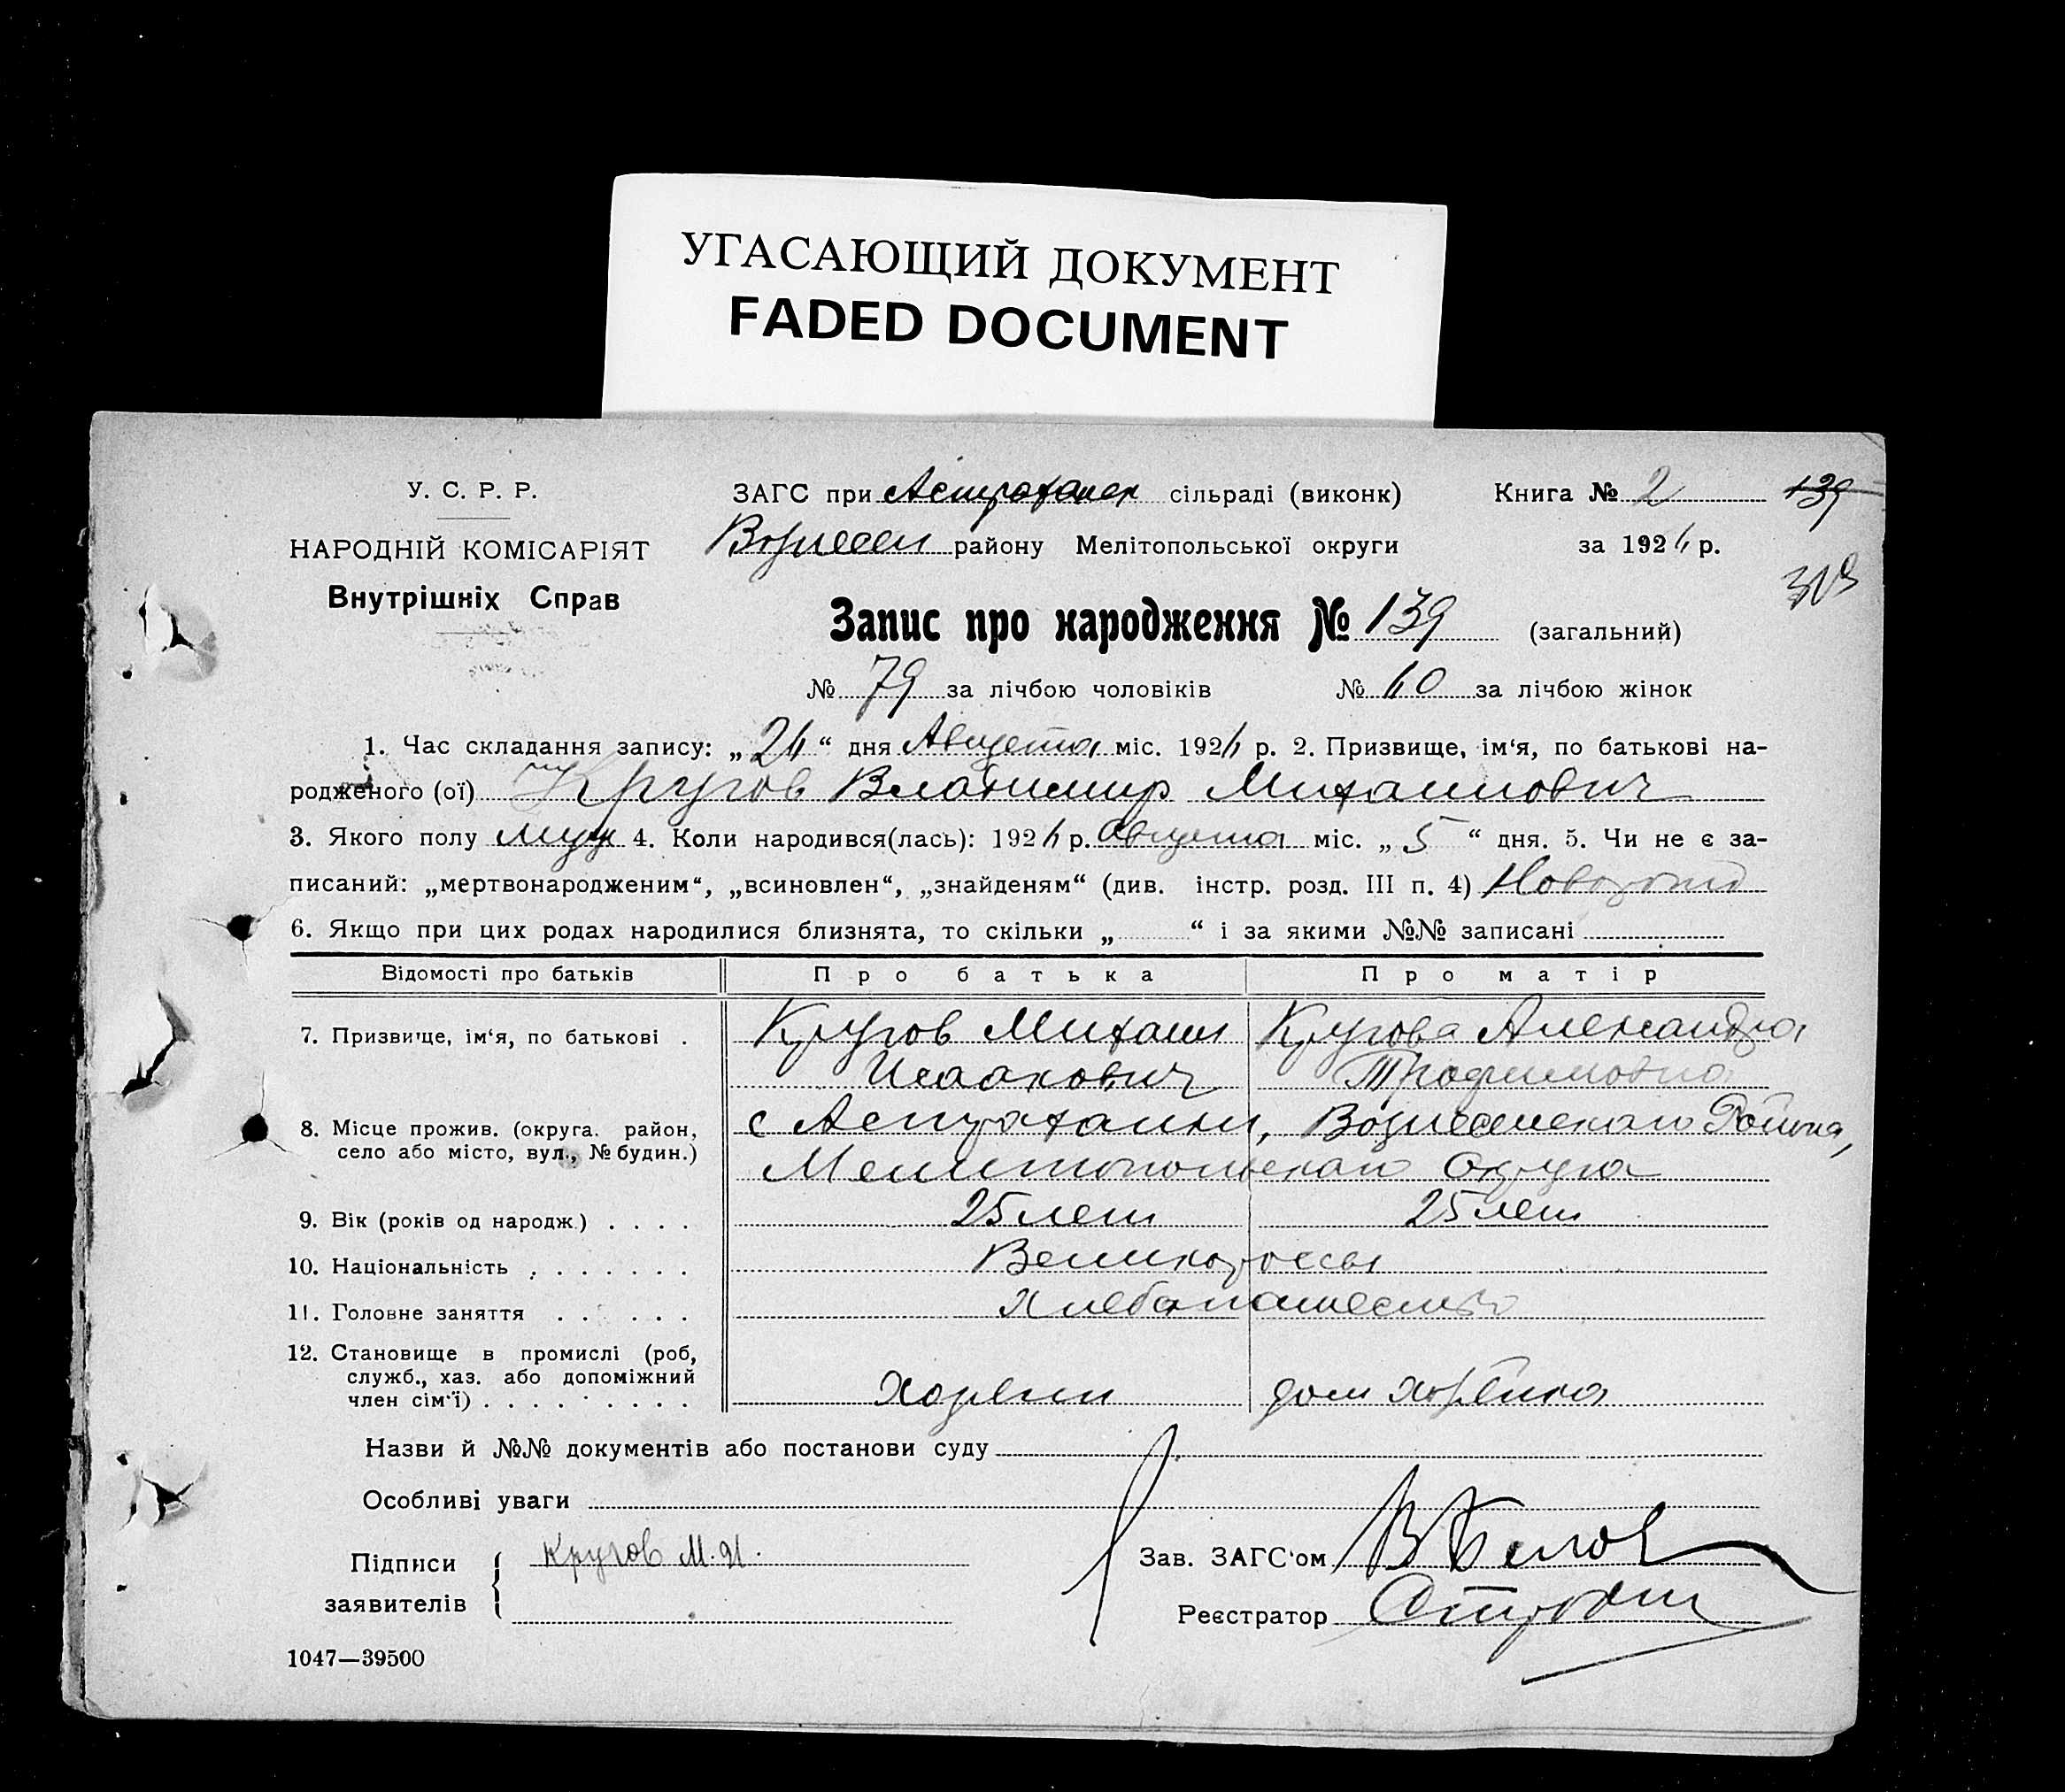 УГАСАЮЩИЙ ДОКУМЕНТ
FADED DOCUMENT
У. С. Р. Р.
НАРОДНІЙ КОМІСАРІЯТ
Внутрішніх Справ
ЗАГС при Астрахан сільраді (виконк)
Вознесен району Мелітопольської округи
Книга № 2
139
за 192 р.
Запис про народження № 139 (загальний)
№ 79 за лічбою чоловіків № 60 за лічбою жінок
1. Час складання запису: „ “ дня Августа міс. 192 р. 2. Призвище, ім‘я, по батькові на-
родженого (ої) Кругов Владимир Михаилович
3. Якого полу муж 4. Коли народився(лась): 192 р. Августа міс. „ 5 “ дня. 5. Чи не є за-
писаний: „мертвонародженим“, „всиновлен“, „знайденям“ (див. інстр. розд. III п. 4)
6. Якщо при цих родах народилися близнята, то скільки „ “ і за якими №№ записані
Відомості про батьків Про батька Про матір
7. Призвище, ім‘я, по батькові . Кругов Михаил Кругова Александра
Исаакович Трофимовна
8. Місце прожив. (округа. район,
село або місто, вул., № будин.)
с Астраханки, Вознесенскаго Района,
Мелитопольскаго Округа
9. Вік (років од народж.) . . . . 25 лет 25 лет
10. Національність . . . . . . . Великороссы
11. Головне заняття . . . . . . Хлебопашество
12. Становище в промислі (роб,
служб., хаз. або допоміжний
член сім‘ї) . . . . . . . . . Хозяин дом хозяйка
Назви й №№ документів або постанови суду
Особливі уваги
Підписи
заявителів
Кругов М. И.
Зав. ЗАГС‘ом В Белов
Реєстратор
1047—39500